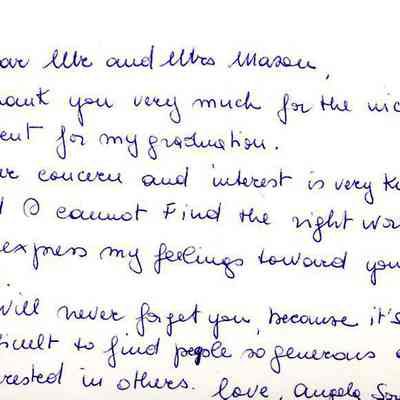 ar Mr and Mrs Mason,
hank you very much for the nic
ent for my graduation.
ur concern and interest is very k
d I cannot Find the right wor
express my feelings toward you
will never forget you, because it's
ficult to find people so generous
rested in others. love, Angela